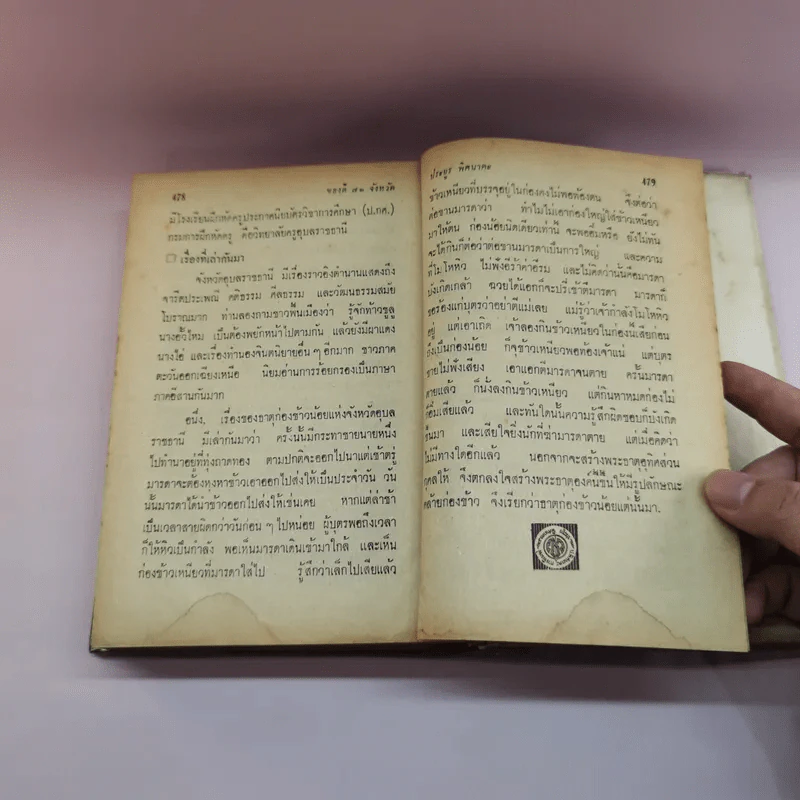 478 ของดี ๗๑ จังหวัด
มีโรงเรียนฝึกหัดครูประกาศนียบัตรวิชาการศึกษา (ป.กศ.)
กรมการฝึกหัดครู คือวิทยาลัยครูอุบลราชธานี
เรื่องที่เล่ากันมา
จังหวัดอุบลราชธานี มีเรื่องราวอิงตำนานแสดงถึง
จารีตประเพณี คติธรรม ศีลธรรม และวัฒนธรรมสมัย
โบราณมาก ท่านลองถามชาวพื้นเมืองว่า รู้จักท้าวขูลู
นางอั้วไหม เป็นต้องพยักหน้าไปตามกัน แล้วยังมีผาแดง
นางไอ่ และเรื่องทำนองจินตนิยายอื่น ๆ อีกมาก ชาวภาค
ตะวันออกเฉียงเหนือ นิยมอ่านการร้อยกรองเป็นภาษา
ภาคอีสานกันมาก
อนึ่ง, เรื่องของธาตุก่องข้าวน้อยแห่งจังหวัดอุบล
ราชธานี มีเล่ากันมาว่า ครั้งนั้นมีกระทาชายนายหนึ่ง
ไปทำนาอยู่ที่ทุ่งถาดทอง ตามปกติจะออกไปนาแต่เช้าตรู่
มารดาจะต้องหุงหาข้าวเอาออกไปส่งให้เป็นประจำวัน วัน
นั้นมารดาได้นำข้าวออกไปส่งให้เช่นเคย หากแต่ล่าช้า
เป็นเวลาสายผิดกว่าวันก่อน ๆ ไปหน่อย ผู้บุตรพอถึงเวลา
ก็ให้หิวเป็นกำลัง พอเห็นมารดาเดินเข้ามาใกล้ และเห็น
ก่องข้าวเหนียวที่มารดาใส่ไป รู้สึกว่าเล็กไปเสียแล้ว
ประยูร พิศนาคะ 479
ข้าวเหนียวที่บรรจุอยู่ในก่องคงไม่พอท้องตน จึงต่อว่า
ต่อขานมารดาว่า ทำไมไม่เอาก่องใหญ่ใส่ข้าวเหนียว
มาให้ตน ก่องน้อยนิดเดียวเท่านี้ จะพออิ่มหรือ ยังไม่ทัน
จะได้กินก็ต่อว่าต่อขานมารดาเป็นการใหญ่ และความ
ที่โมโหหิว ไม่ฟังอีร้าค่าอีรม และไม่คิดว่านั้นคือมารดา
บังเกิดเกล้า ฉวยได้แอกก็จะปรี่เข้าตีมารดา มารดาก็
ขอร้องแก่บุตรว่าอย่าตีแม่เลย แม่รู้ว่าเจ้ากำลังโมโหหิว
อยู่ แต่เอาเถิด เจ้าลองกินข้าวเหนียวในก่องนี้เสียก่อน
ถึงเป็นก่องน้อย ก็จุข้าวเหนียวพอท้องเจ้าแน่ แต่บุตร
ชายไม่ฟังเสียง เอาแอกตีมารดาจนตาย ครั้นมารดา
ตายแล้ว ก็นั่งลงกินข้าวเหนียว แต่กินหาหมดก่องไม่
ก็อิ่มเสียแล้ว และทันใดนั้นความรู้สึกผิดชอบก็บังเกิด
ขึ้นมา และเสียใจยิ่งนักที่ฆ่ามารดาตาย แต่เมื่อคิดว่า
ไม่มีทางใดอีกแล้ว นอกจากจะสร้างพระธาตุอุทิศส่วน
กุศลให้ จึงตกลงใจสร้างพระธาตุองค์นี้ขึ้นให้มีรูปลักษณะ
คล้ายก่องข้าว จึงเรียกว่าธาตุก่องข้าวน้อยแต่นั้นมา.